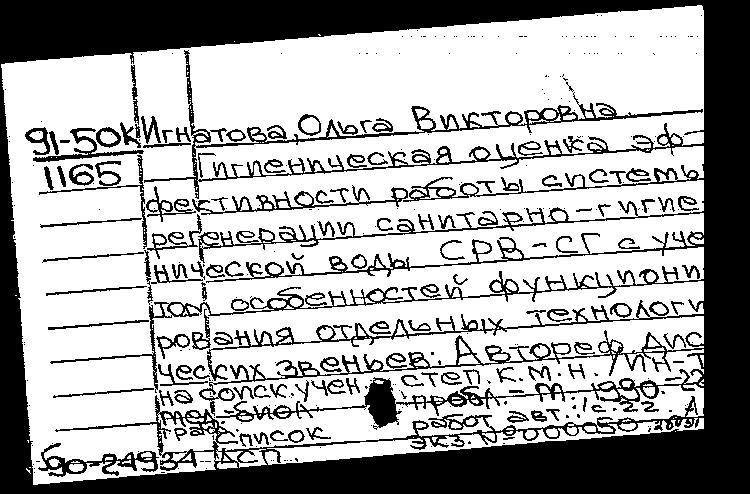 91-50к Игнатова, Ольга Викторовна.
1165 Гигиеническая оценка эф-
фективности работы системы
регенерации санитарно-гигие-
нической воды СРВ-СГ с уче-
том особенностей функциони
рования отдельных технологи
ческих звеньев: Автореф. дис
на соиск. учен. степ. к.м.н. /Ин-т
мед.-биол. пробл.- М., 1990.-22
Список работ авт.: с.22.
ДСП. экз. №000050
б90-24934